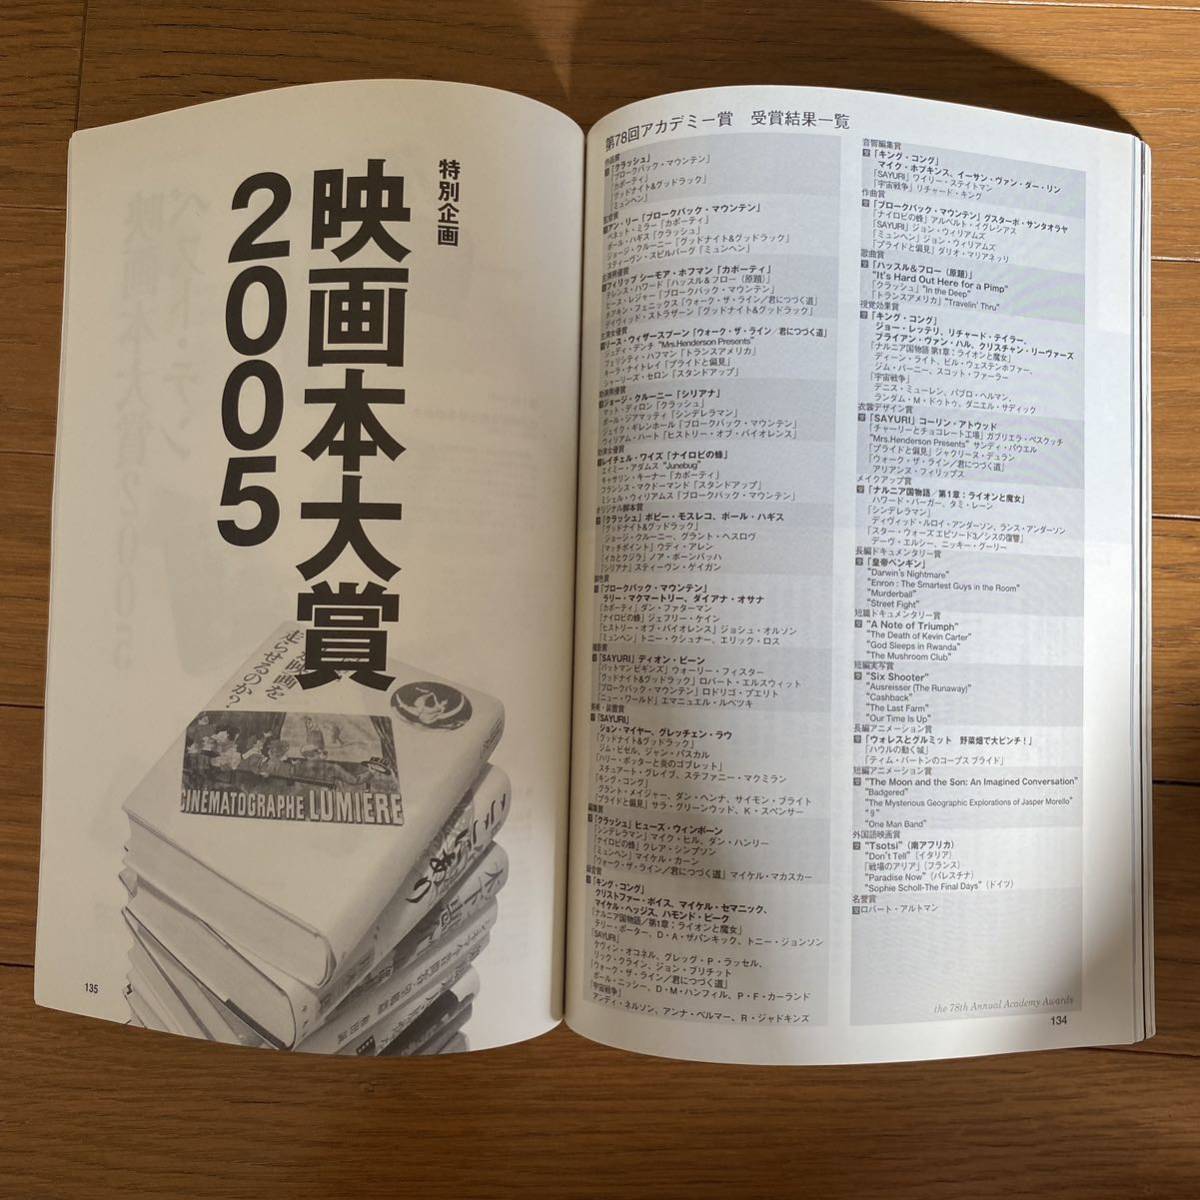 第78回アカデミー賞　受賞結果一覧
作品賞
「クラッシュ」
「ブロークバック・マウンテン」
「カポーティ」
「グッドナイト&グッドラック」
「ミュンヘン」
監督賞
アン・リー「ブロークバック・マウンテン」
ベネット・ミラー「カポーティ」
ポール・ハギス「クラッシュ」
ジョージ・クルーニー「グッドナイト&グッドラック」
スティーヴン・スピルバーグ「ミュンヘン」
主演男優賞
フィリップ シーモア・ホフマン「カポーティ」
テレンス・ハワード「ハッスル&フロー（原題）」
ヒース・レジャー「ブロークバック・マウンテン」
ホアキン・フェニックス「ウォーク・ザ・ライン／君につづく道」
デイヴィッド・ストラザーン「グッドナイト&グッドラック」
主演女優賞
リース・ウィザースプーン「ウォーク・ザ・ライン／君につづく道」
ジュディ・デンチ "Mrs.Henderson Presents"
フェリシティ・ハフマン「トランスアメリカ」
キーラ・ナイトレイ「プライドと偏見」
シャーリーズ・セロン「スタンドアップ」
助演男優賞
ジョージ・クルーニー「シリアナ」
マット・ディロン「クラッシュ」
ポール・ジアマッティ「シンデレラマン」
ジェイク・ギレンホール「ブロークバック・マウンテン」
ウィリアム・ハート「ヒストリー・オブ・バイオレンス」
助演女優賞
レイチェル・ワイズ「ナイロビの蜂」
エイミー・アダムス "Junebug"
キャサリン・キーナー「カポーティ」
フランシス・マクドーマンド「スタンドアップ」
ミシェル・ウィリアムス「ブロークバック・マウンテン」
オリジナル脚本賞
「クラッシュ」ボビー・モスレコ、ポール・ハギス
「グッドナイト&グッドラック」
ジョージ・クルーニー、グラント・ヘスロヴ
「マッチポイント」ウディ・アレン
「イカとクジラ」ノア・ボーンバッハ
「シリアナ」スティーヴン・ゲイガン
脚色賞
「ブロークバック・マウンテン」
ラリー・マクマートリー、ダイアナ・オサナ
「カポーティ」ダン・ファターマン
「ナイロビの蜂」ジェフリー・ケイン
「ヒストリー・オブ・バイオレンス」ジョシュ・オルソン
「ミュンヘン」トニー・クシュナー、エリック・ロス
撮影賞
「SAYURI」ディオン・ビーン
「バットマン ビギンズ」ウォーリー・フィスター
「グッドナイト&グッドラック」ロバート・エルスウィット
「ブロークバック・マウンテン」ロドリゴ・プエリト
「ニュー・ワールド」エマニュエル・ルベツキ
美術・装置賞
「SAYURI」
ジョン・マイヤー、グレッチェン・ラウ
「グッドナイト&グッドラック」
ジム・ビゼル、ジャン・パスカル
「ハリー・ポッターと炎のゴブレット」
スチュアート・グレイブ、ステファニー・マクミラン
「キング・コング」
グラント・メイジャー、ダン・ヘンナ、サイモン・ブライト
「プライドと偏見」サラ・グリーンウッド、K・スペンサー
編集賞
「クラッシュ」ヒューズ・ウィンボーン
「シンデレラマン」マイク・ヒル、ダン・ハンリー
「ナイロビの蜂」クレア・シンプソン
「ミュンヘン」マイケル・カーン
「ウォーク・ザ・ライン／君につづく道」マイケル・マカスカー
録音賞
「キング・コング」
クリストファー・ボイス、マイケル・セマニック、
マイケル・ヘッジス、ハモンド・ピーク
「ナルニア国物語／第1章：ライオンと魔女」
テリー・ポーター、D・A・ザバンキック、トニー・ジョンソン
「SAYURI」
ケヴィン・オコネル、グレッグ・P・ラッセル、
リック・クライン、ジョン・プリチット
「ウォーク・ザ・ライン／君につづく道」
ポール・ニッシー、D・M・ハンフィル、P・F・カーランド
「宇宙戦争」
アンディ・ネルソン、アンナ・ベルマー、R・ジャドキンズ
音響編集賞
「キング・コング」
マイク・ホプキンス、イーサン・ヴァン・ダー・リン
「SAYURI」ワイリー・ステイトマン
「宇宙戦争」リチャード・キング
作曲賞
「ブロークバック・マウンテン」グスターボ・サンタオラヤ
「ナイロビの蜂」アルベルト・イグレシアス
「SAYURI」ジョン・ウィリアムズ
「ミュンヘン」ジョン・ウィリアムズ
「プライドと偏見」ダリオ・マリアネッリ
歌曲賞
「ハッスル&フロー（原題）」
"It's Hard Out Here for a Pimp"
「クラッシュ」"In the Deep"
「トランスアメリカ」"Travelin' Thru"
視覚効果賞
「キング・コング」
ジョー・レッテリ、リチャード・テイラー、
ブライアン・ヴァン・ハル、クリスチャン・リーヴァーズ
「ナルニア国物語 第1章：ライオンと魔女」
ディーン・ライト、ビル・ウェステンホファー、
ジム・バーニー、スコット・ファーラー
「宇宙戦争」
デニス・ミューレン、パブロ・ヘルマン、
ランダム・M・ドゥトゥ、ダニエル・サディック
衣裳デザイン賞
「SAYURI」コーリン・アトウッド
「チャーリーとチョコレート工場」ガブリエラ・ペスクッチ
"Mrs.Henderson Presents" サンディ・パウエル
「プライドと偏見」ジャクリーヌ・デュラン
「ウォーク・ザ・ライン／君につづく道」
アリアンヌ・フィリップス
メイクアップ賞
「ナルニア国物語／第1章：ライオンと魔女」
ハワード・バーガー、タミ・レーン
「シンデレラマン」
ディヴィッド・ルロイ・アンダーソン、ランス・アンダーソン
「スター・ウォーズ エピソード3／シスの復讐」
デーヴ・エルシー、ニッキー・グーリー
長編ドキュメンタリー賞
「皇帝ペンギン」
"Darwin's Nightmare"
"Enron : The Smartest Guys in the Room"
"Murderball"
"Street Fight"
短篇ドキュメンタリー賞
"A Note of Triumph"
"The Death of Kevin Carter"
"God Sleeps in Rwanda"
"The Mushroom Club"
短編実写賞
"Six Shooter"
"Ausreisser (The Runaway)"
"Cashback"
"The Last Farm"
"Our Time Is Up"
長編アニメーション賞
「ウォレスとグルミット　野菜畑で大ピンチ！」
「ハウルの動く城」
「ティム・バートンのコープス ブライド」
短編アニメーション賞
"The Moon and the Son: An Imagined Conversation"
"Badgered"
"The Mysterious Geographic Explorations of Jasper Morello"
"9"
"One Man Band"
外国語映画賞
"Tsotsi"（南アフリカ）
"Don't Tell"（イタリア）
「戦場のアリア」（フランス）
"Paradise Now"（パレスチナ）
"Sophie Scholl-The Final Days"（ドイツ）
名誉賞
ロバート・アルトマン
the 78th Annual Academy Awards
134
特別企画
映画本大賞
2005
映画を
走らせるのか?
CINEMATOGRAPHE LUMIÈRE
135